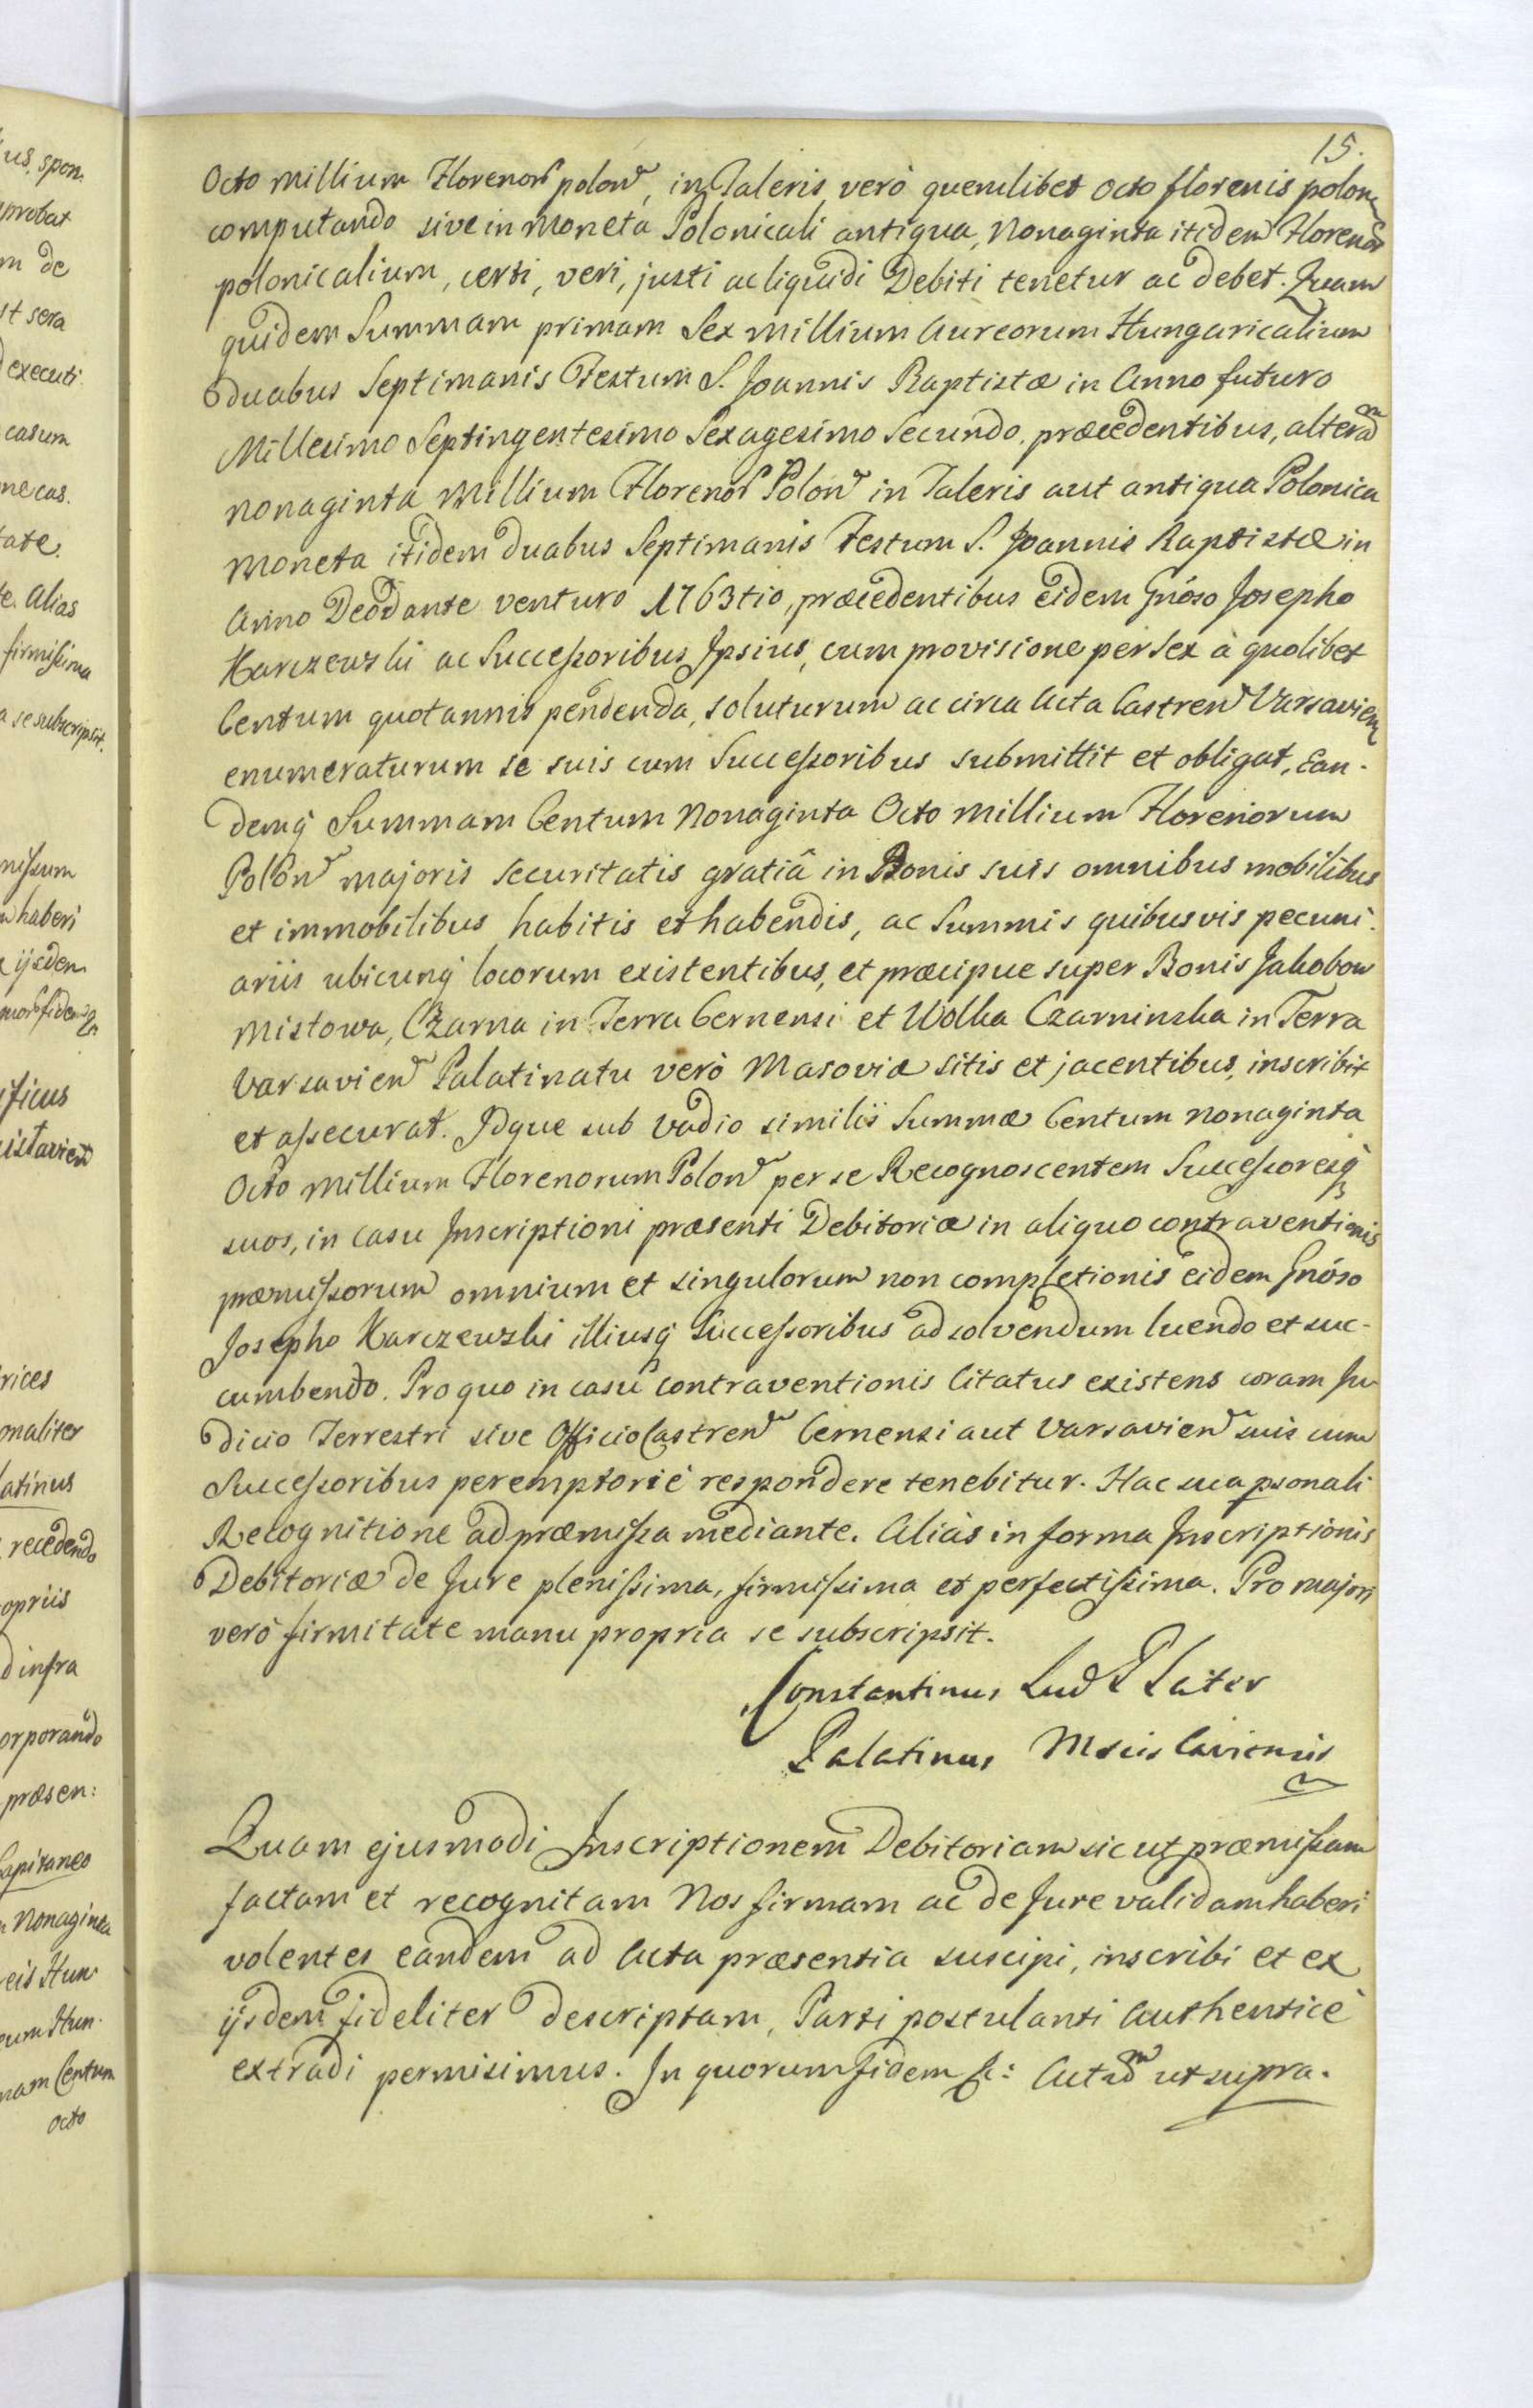 15.
Octo millium Florenor polon, in Taleris verò quemlibet octo florenis polon
computando sive in moneta Polonicali antiqua, Nonaginta itidem Floren
polonicalium, certi, veri, justi ac liquidi Debiti tenetur ac debet. Quam
quidem Summam primam Sex millium Aureorum Hungaricalium
duabus Septimanis Festum S. Joannis Baptistæ in Anno futuro
Millesimo Septingentesimo Sexagesimo Secundo, præcedentibus, alteram
nonaginta Millium Florenor Polon in Taleris aut antiqua Polonica
Moneta itidem duabus Septimanis Festum S. Joannis Baptistæ in
Anno Deo Dante venturo 1763tio, præcedentibus eidem Gnóso Josepho
Karczewski ac Successoribus Ipsius, cum provisione per sex à quolibet
Centum quotannis pendenda, soluturum ac circa Acta Castren Varsavien
enumeraturum se suis cum Successoribus submittit et obligat, Ean-
demq Summam Centum Nonaginta Octo millium Florenorum
Polon majoris securitatis gratiâ in Bonis suis omnibus mobilibus
et immobilibus habitis et habendis, ac Summis quibusvis pecuni-
ariis ubicunq locorum existentibus, et præcipue super Bonis Jakobow
Mistowa, Czarna in Terra Cernensi et Wolka Czarninska in Terra
Varsavien Palatinatu verò Masoviæ sitis et jacentibus, inscribit
et assecurat. Idque sub vadio similis Summæ Centum nonaginta
Octo millium Florenorum Polon per se Recognoscentem Successoresq
suos, in casu Inscriptioni præsenti Debitoriæ in aliquo contraventionis
præmissorum omnium et singulorum non completionis eidem Gnóso
Josepho Karczewski illiusq Successoribus ad solvendum luendo et suc-
cumbendo. Pro quo in casu contraventionis Citatus existens coram Ju
dicio Terrestri sive Officio Castren Cernensi aut Varsavien suis cum
Successoribus peremptoriè respondere tenebitur. Hac sua psonali
Recognitione ad præmissa mediante. Aliàs in forma Inscriptionis
Debitoriæ de Jure plenissima, firmissima et perfectissima. Pro majori
verò firmitate manu propria se subscripsit.
Constantinus Lud Plater
Palatinus Mscislaviensis
Quam ejusmodi Inscriptionem Debitoriam sic ut præmissam
factam et recognitam Nos firmam ac de Jure validam haberi
volentes eandem ad Acta præsentia suscipi, inscribi et ex
ijsdem fideliter descriptam, Parti postulanti Authenticè
extradi permisimus. In quorum fidem &: Act ut supra.